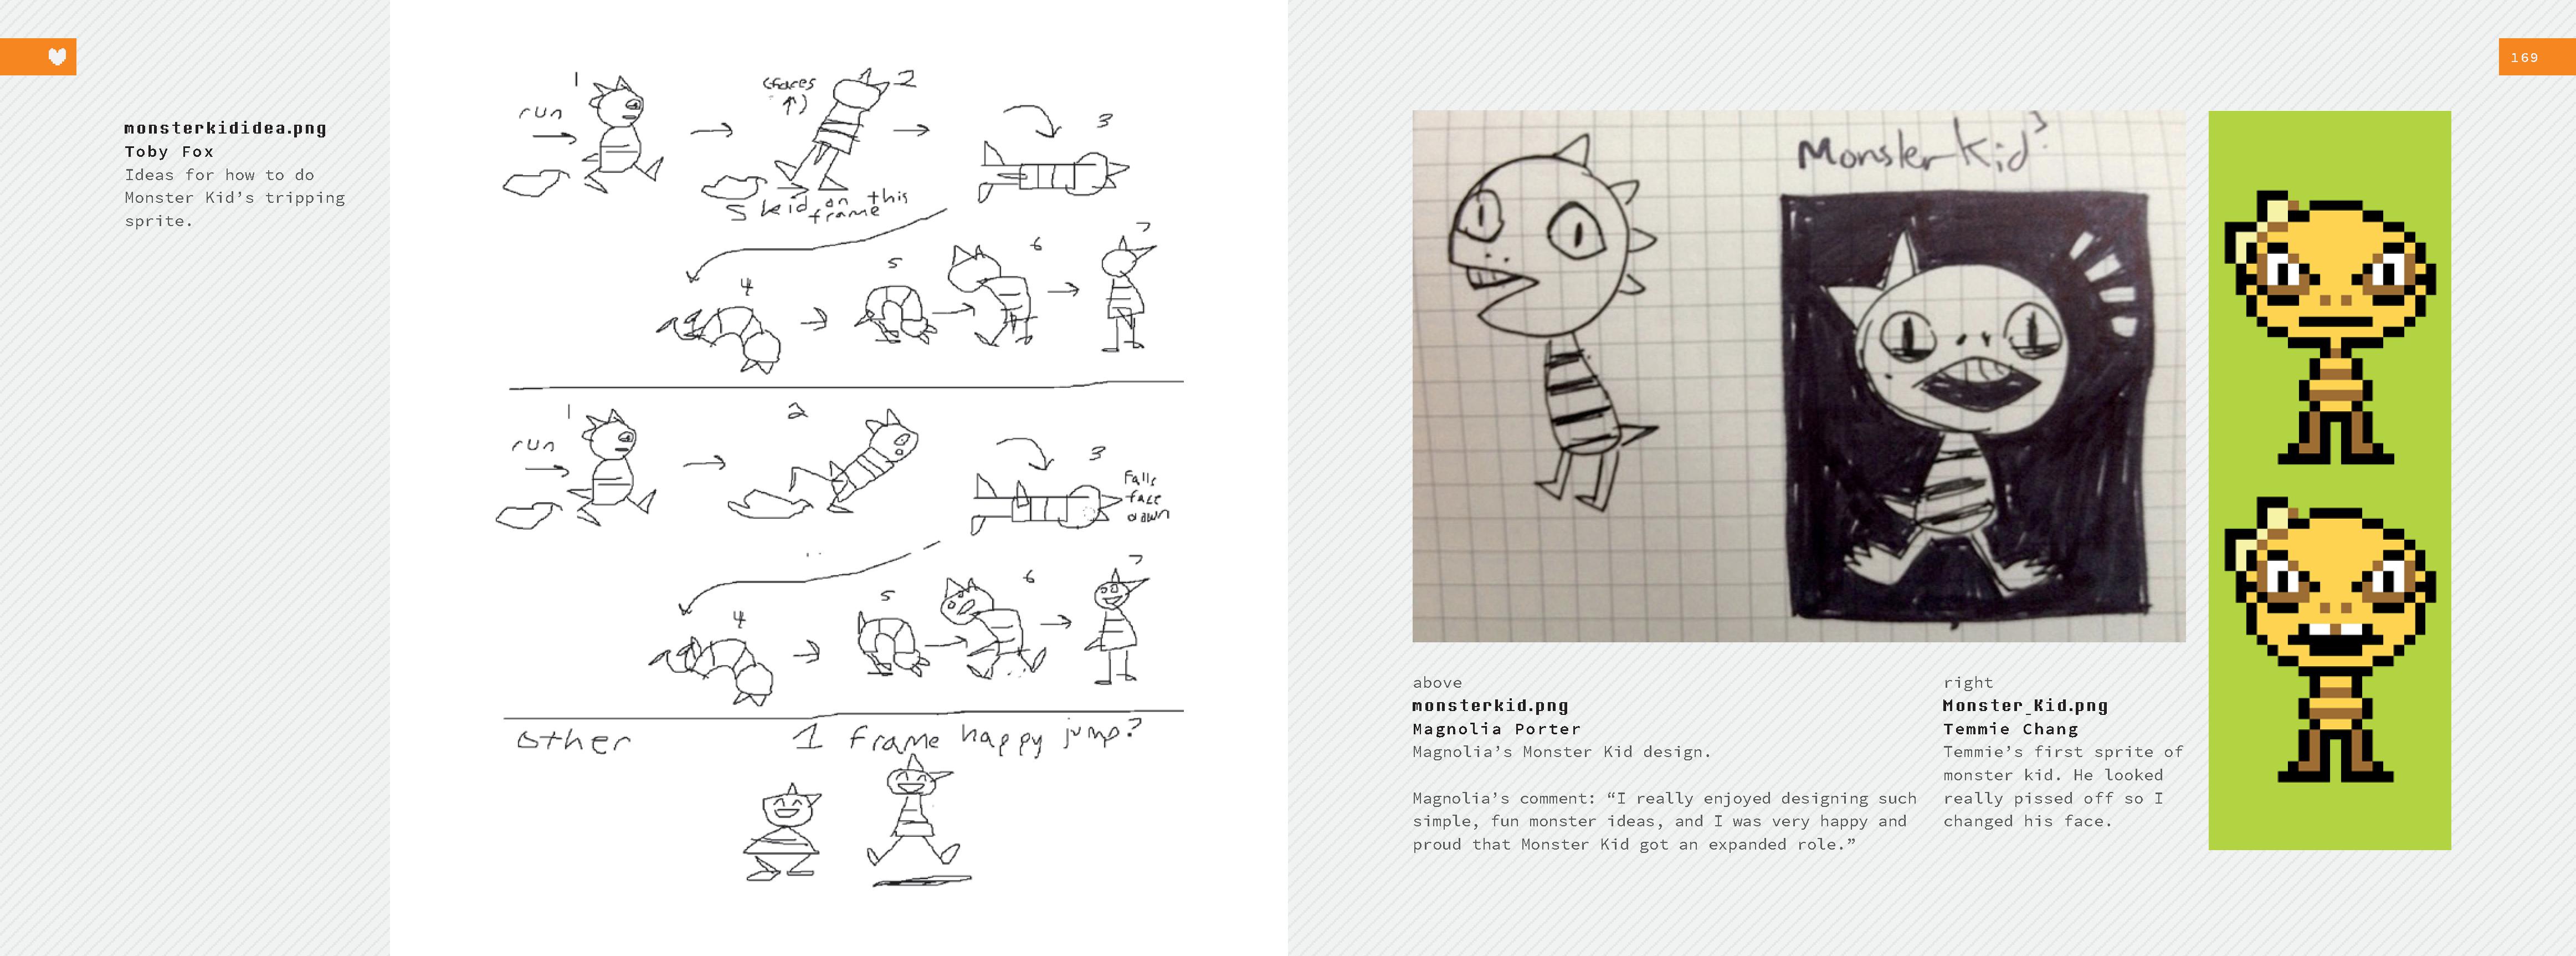 monsterkididea.png
Toby Fox
Ideas for how to do
Monster Kid’s tripping
sprite.
1
run
(faces
↑)
2
3
skid on this
frame
4
5
6
7
1
run
2
3
Falls
face
down
4
5
6
7
other
1 frame happy jump?
169
Monster Kid?
above
monsterkid.png
Magnolia Porter
Magnolia’s Monster Kid design.
Magnolia’s comment: “I really enjoyed designing such
simple, fun monster ideas, and I was very happy and
proud that Monster Kid got an expanded role.”
right
Monster_Kid.png
Temmie Chang
Temmie’s first sprite of
monster kid. He looked
really pissed off so I
changed his face.